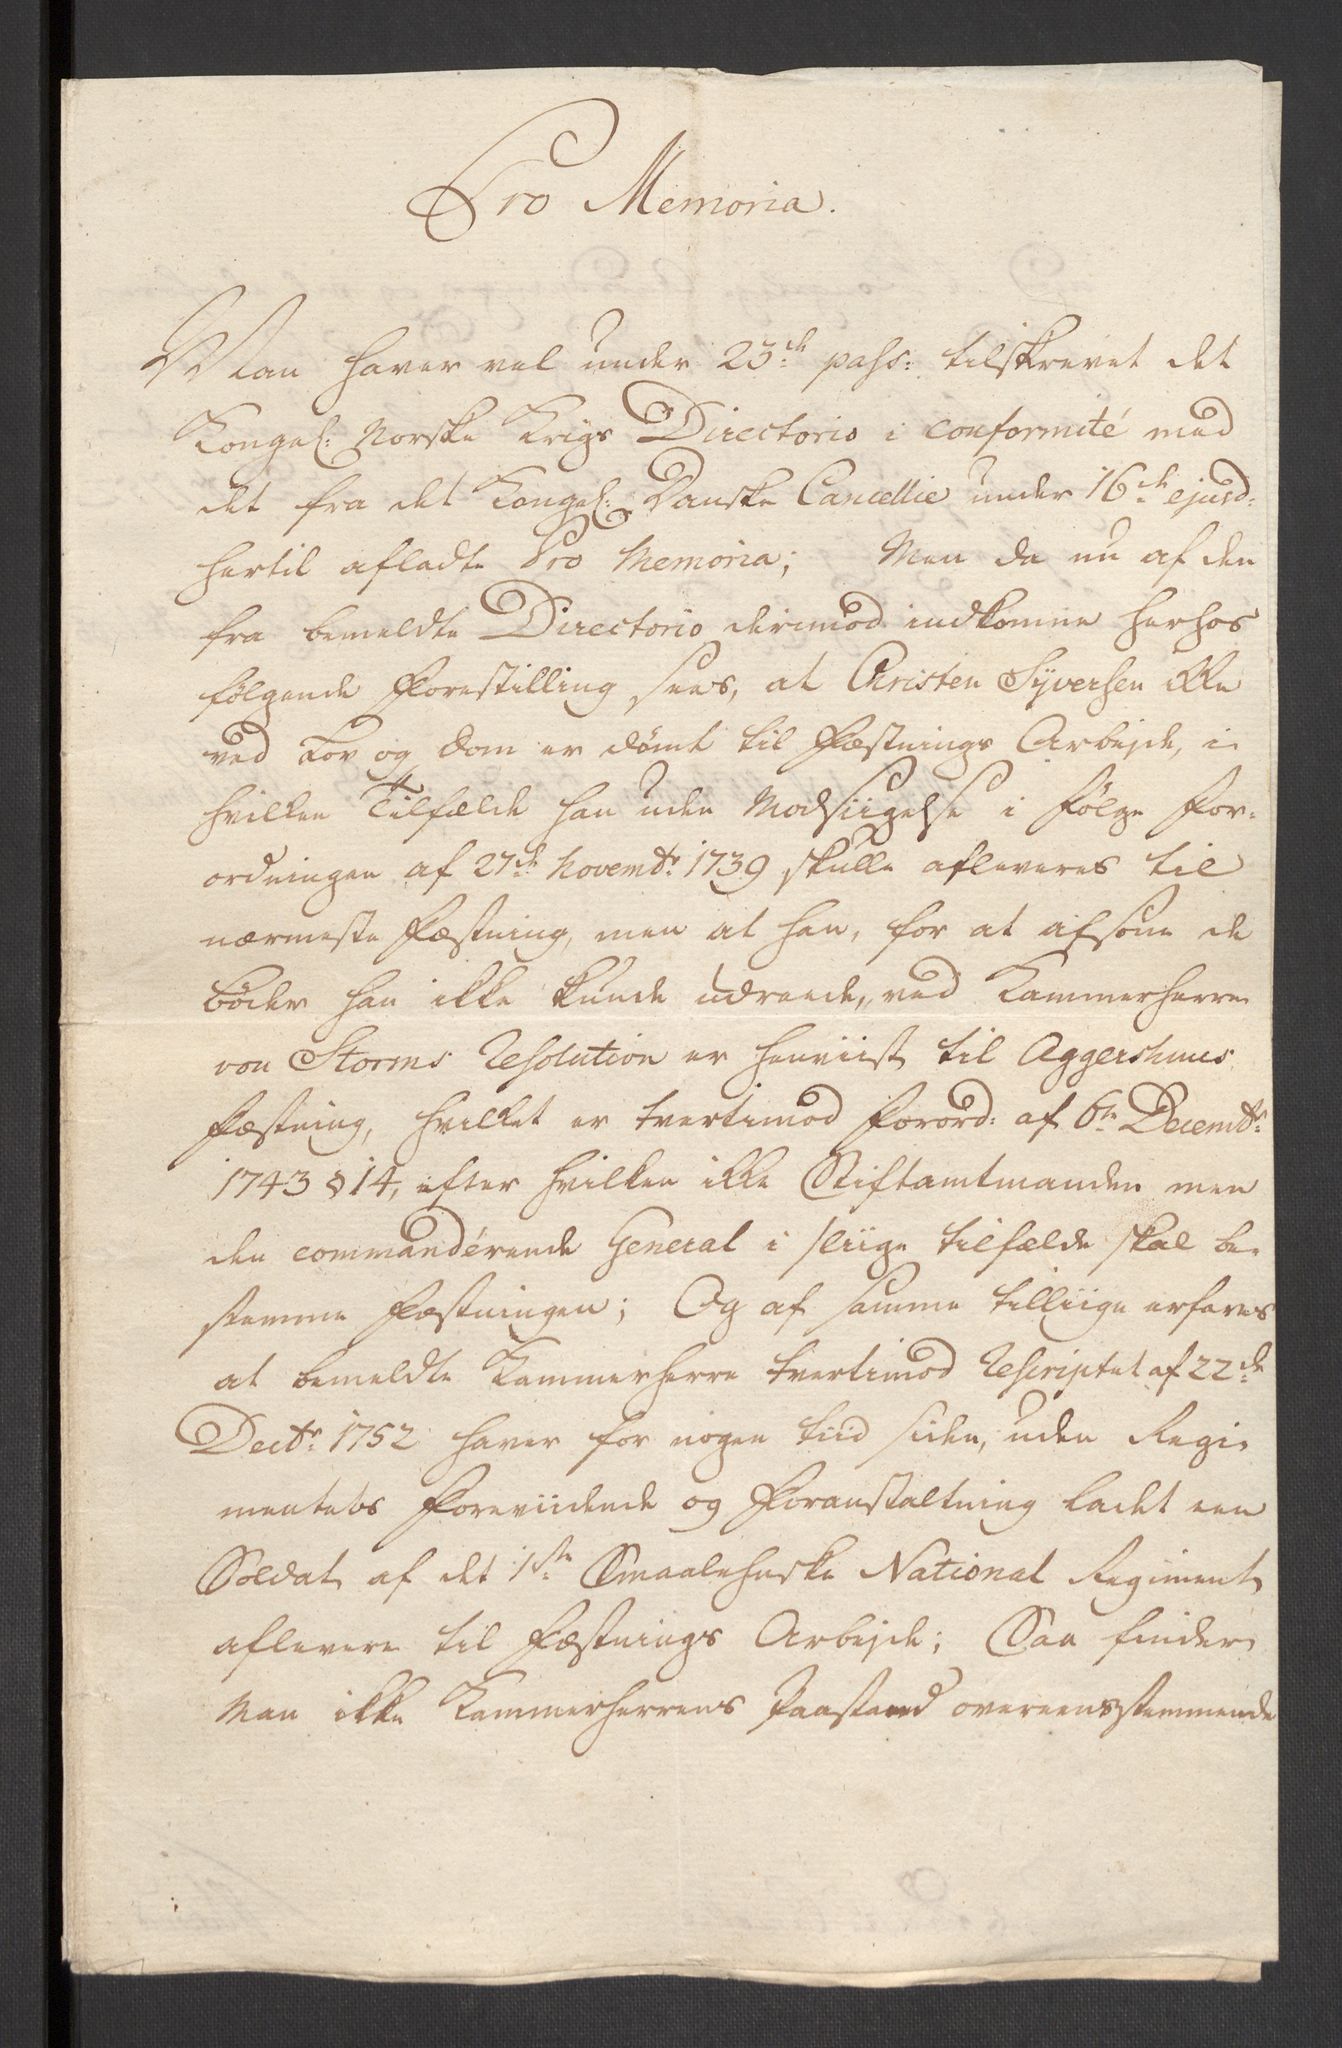 Pro Memoria.
Man haver vel under 23de pass: tilskrevet det
Kongel: Norske Krigs Directorio i conformité med
det fra det Kongel: Danske Cancellie under 16de ejusd:
hertil afladte Pro Memoria; Men da nu af den
fra bemeldte Directorio derimod indkomne herhos
følgende Forestilling sees, at Christen Syversen ikke
ved Lov og Dom er dømt til Fæstnings Arbejde, i
hvilken Tilfælde han uden Modsiigelse i følge For-
ordningen af 27de Novembr: 1739 skulle afleveres til
nærmeste Fæstning, men at han, for at afsone de
bøder han ikke kunde udreede, ved Kammerherre
von Storms Resolution er henviist til Aggershuus
Fæstning, hvilket er tvertimod Forord: af 6te Decembr:
1743 § 14, efter hvilken ikke Stiftamtmanden men
den commandérende General i sliige tilfælde skal be-
stemme Fæstningen; Og af samme tilliige erfares
at bemeldte Kammerherre tvertimod Rescriptet af 22de
Decbr: 1752 haver for nogen tiid siden, uden Regi-
mentets Foreviidende og Foranstaltning ladet een
Soldat af det 1ste Smaalehnske National Regiment
aflevere til Fæstnings Arbejde; Saa finder
Man ikke Kammerherrens Paastand overeensstemmende